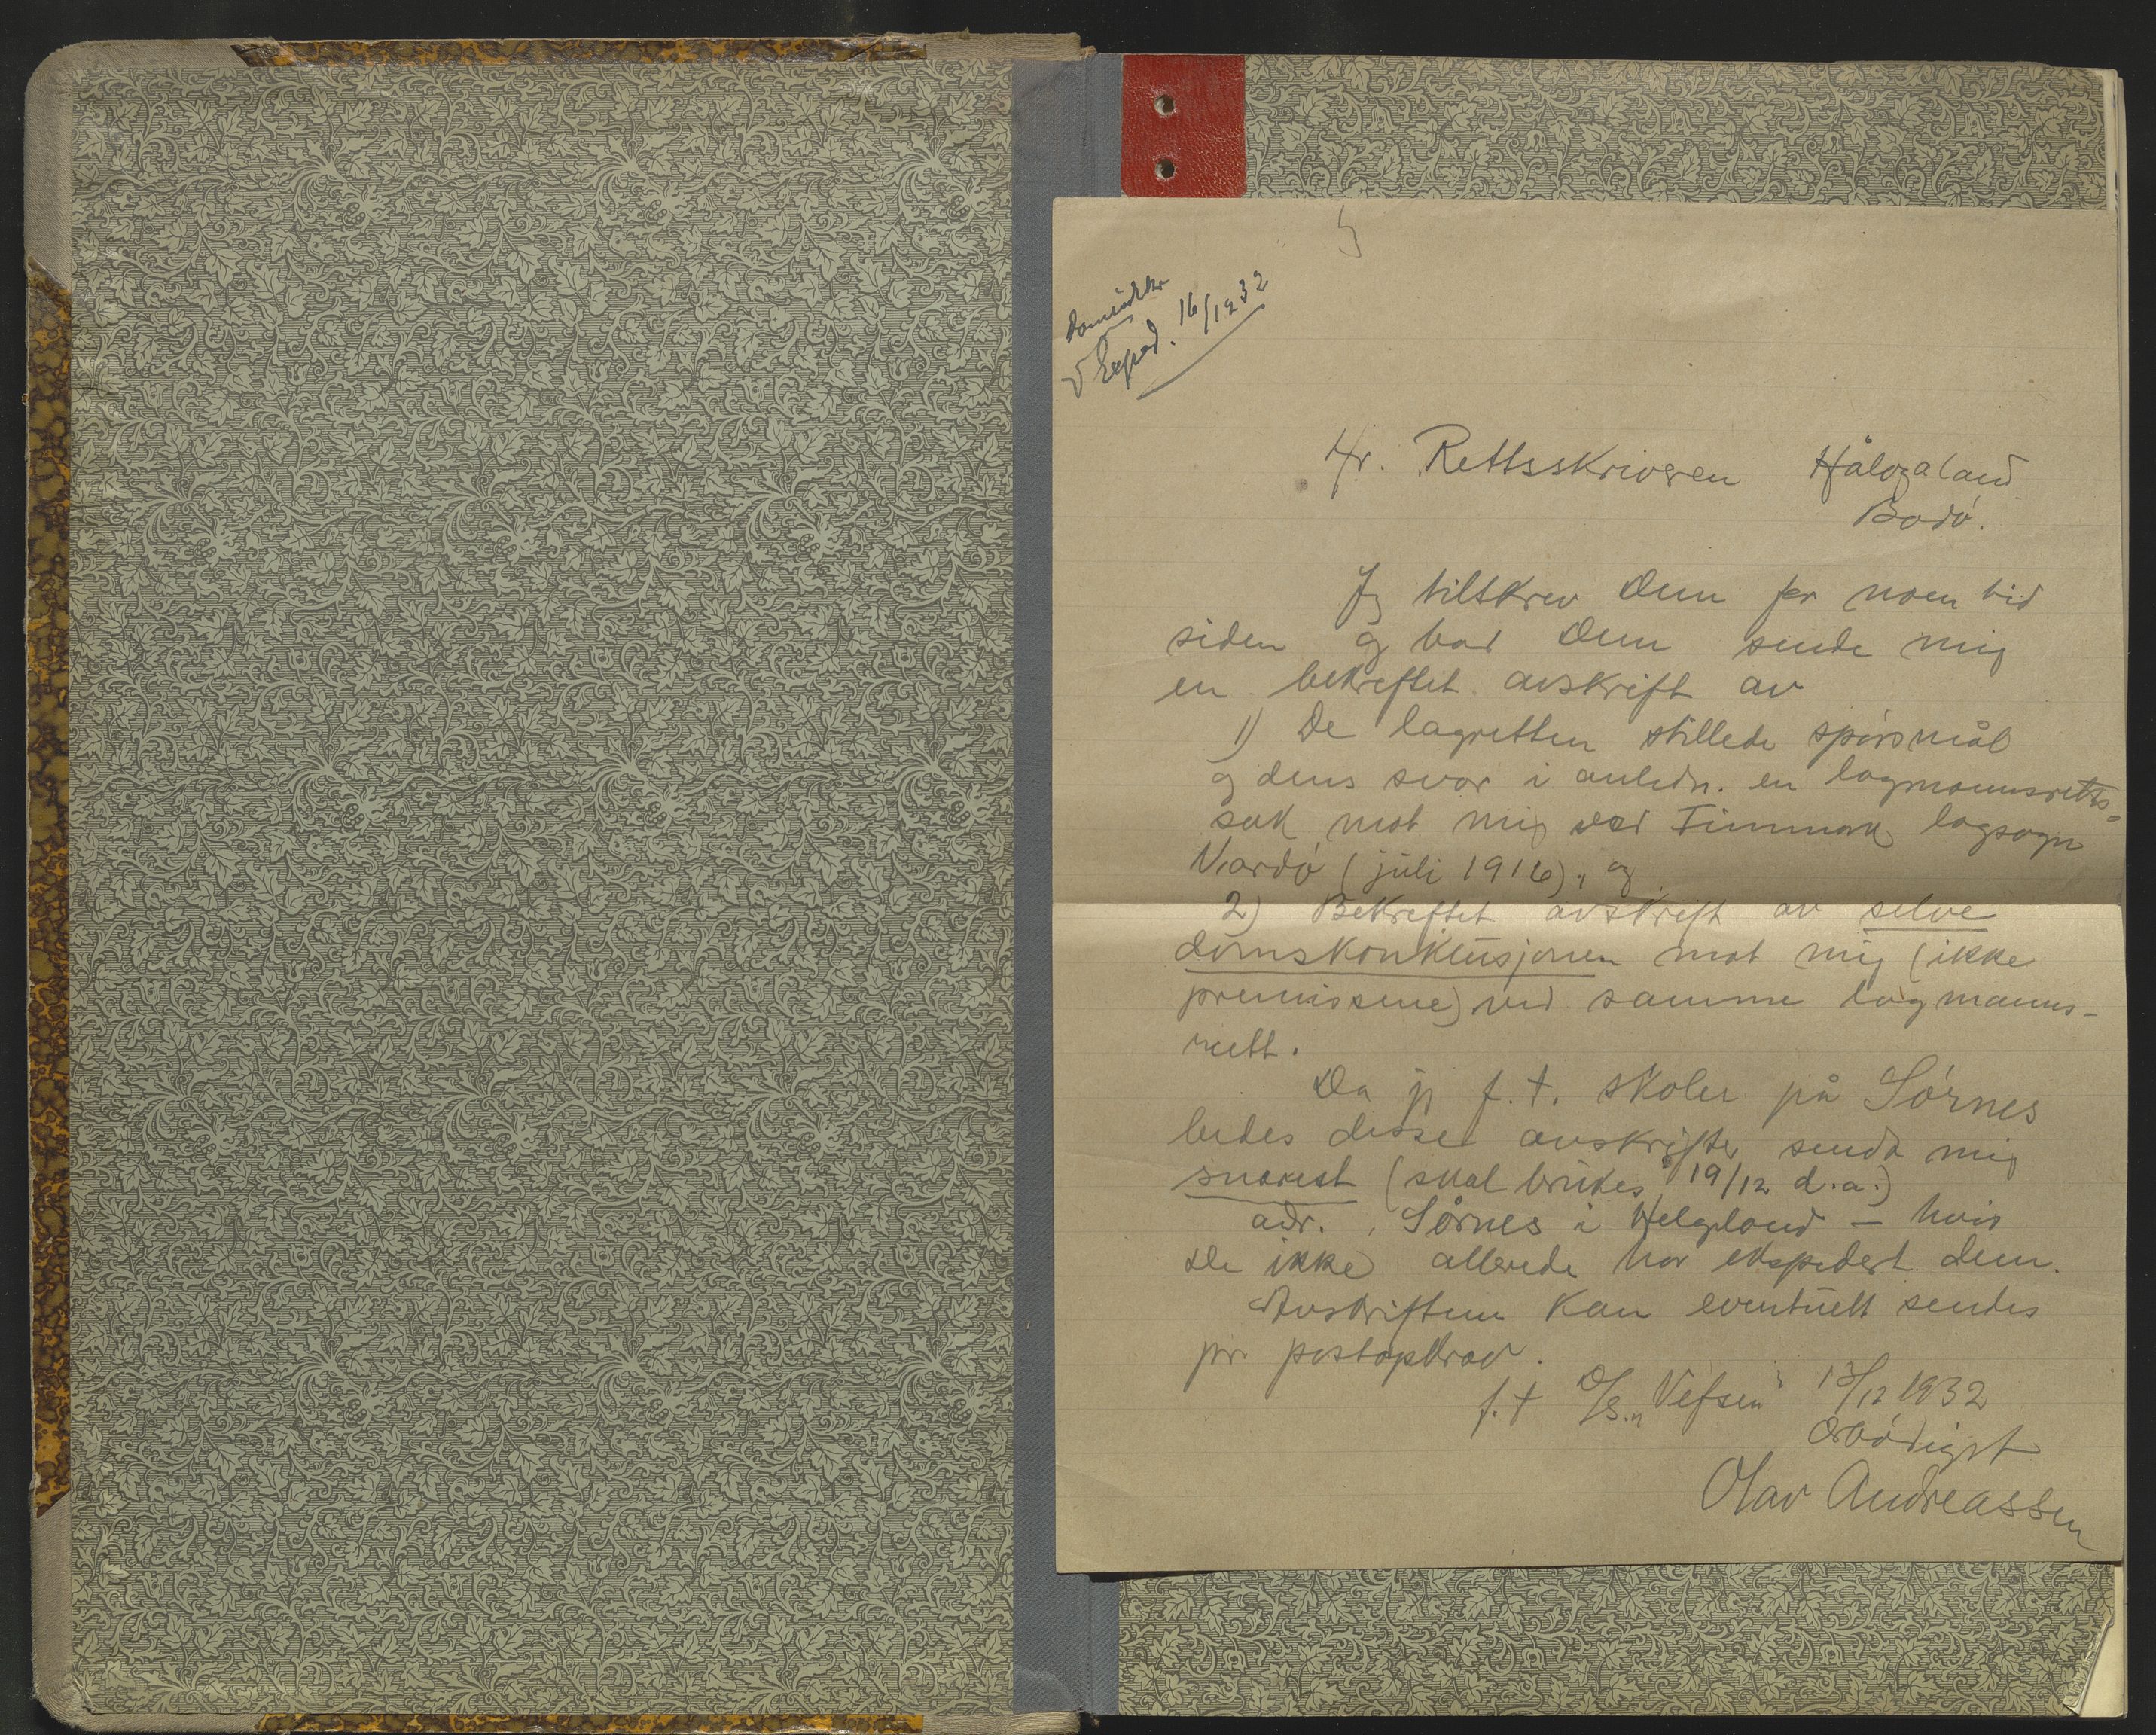 Exped. 16/12 32
Hr. Rettsskriveren Hålogaland
Bodø.
Jeg tilskrev Dem for noen tid
siden og bad Dem sende mig
en bekreftet avskrift av
1) De lagretten stillede spørsmål
og dens svar i anledn. en lagmannsretts-
sak mot mig ved Finnmark lagsogn
Vardø (juli 1916), og
2) Bekreftet avskrift av selve
domskonklusjonen mot mig (ikke
premissene) ved samme lagmanns-
rett.
Da jeg f. t. skoler på Sørnes
bedes disse avskrifter sendt mig
snarest (skal brukes 19/12 d.a.)
adr. Sørnes i Helgeland – hvis
De ikke allerede har ekspedert dem.
Avskriftene kan eventuelt sendes
pr. postopkrav.
f. t. D/S. "Vefsen" 13/12 1932
Ærbødigst
Olav Andreassen